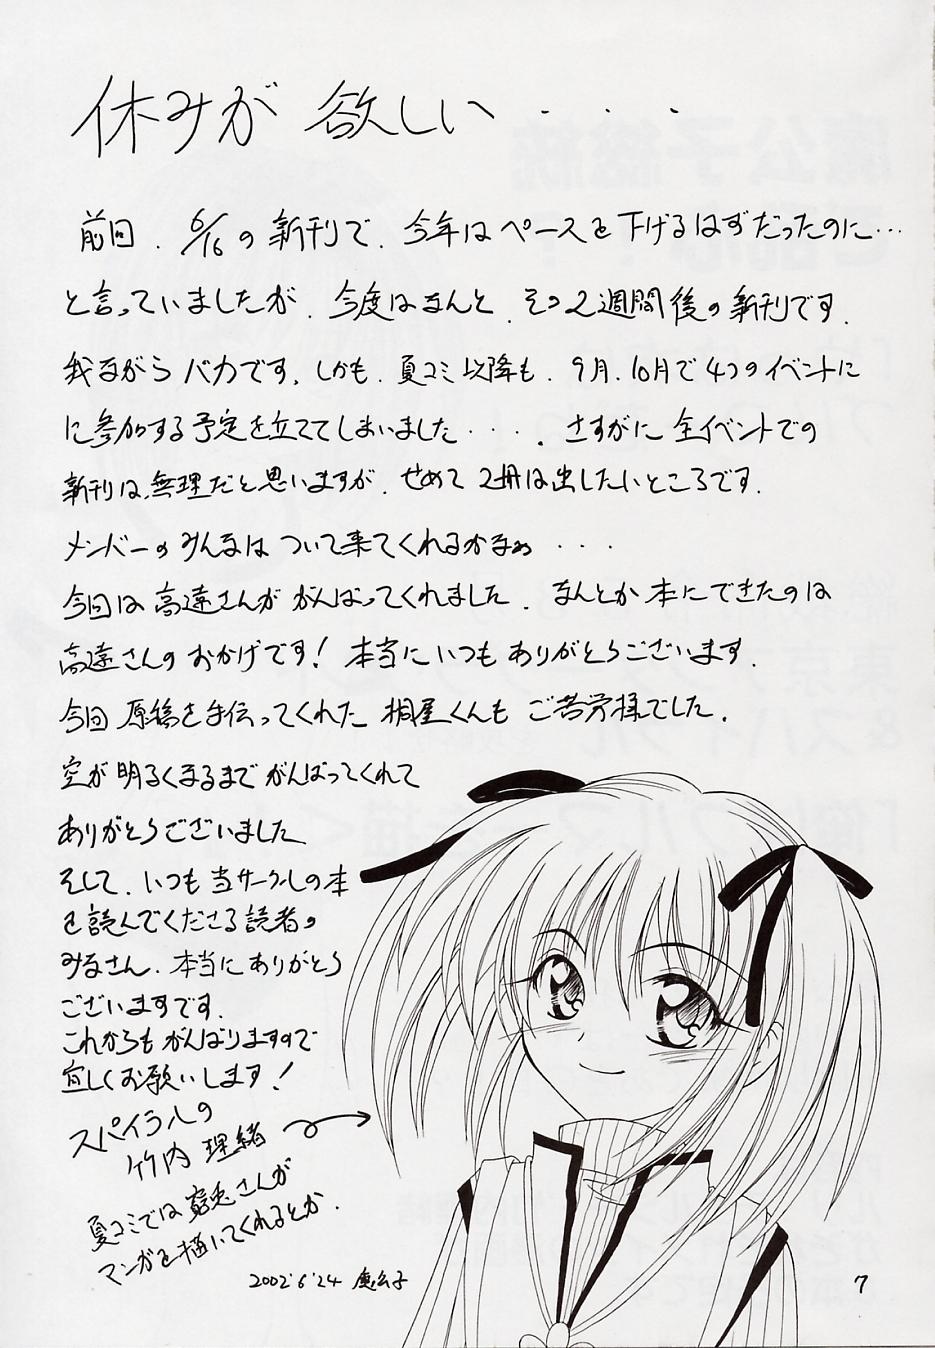 休みが 欲しい・・・
前回、6/16の新刊で、今年はペースを下げるはずだったのに…
と言っていましたが、今度はなんと、その2週間後の新刊です。
我ながらバカです。しかも、夏コミ以降も、9月、10月で4つのイベントに
に参加する予定を立ててしまいました・・・。さすがに全イベントでの
新刊は、無理だと思いますが、せめて2冊は出したいところです。
メンバーのみんなは ついて来てくれるかなぁ・・・
今回は高遠さんが がんばってくれました。なんとか本にできたのは
高遠さんのおかげです！本当にいつもありがとうございます。
今回 原稿を手伝ってくれた 桐屋くんも ご苦労様でした。
空が明るくなるまでがんばってくれて
ありがとうございました
そして、いつも当サークルの本
を読んでくださる読者の
みなさん、本当にありがとう
ございますです。
これからもがんばりますので
宜しくお願いします！
スパイラルの
竹内 理緒
夏コミでは 兎さんが
マンガを描いてくれるとか。
2002'6'24 魔公子
7